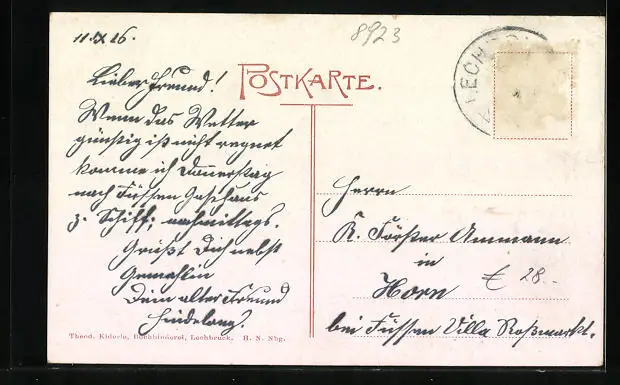 11.X 26.
8923
LECHBR
POSTKARTE.
Lieber Freund!
Wenn das Wetter
günstig ist nicht regnet
komme ich Donnerstag
nach Füssen Gasthaus
z. Schiff, nachmittags.
Grüßt Dich nebst
Gemahlin
Dein alter Freund
Herrn
K. Förster Ammann
in
Horn
€ 28.-
bei Füssen Villa Roßmarkt.
Theod. Kiderle, Buchbinderei, Lechbruck. H. N. Nbg.